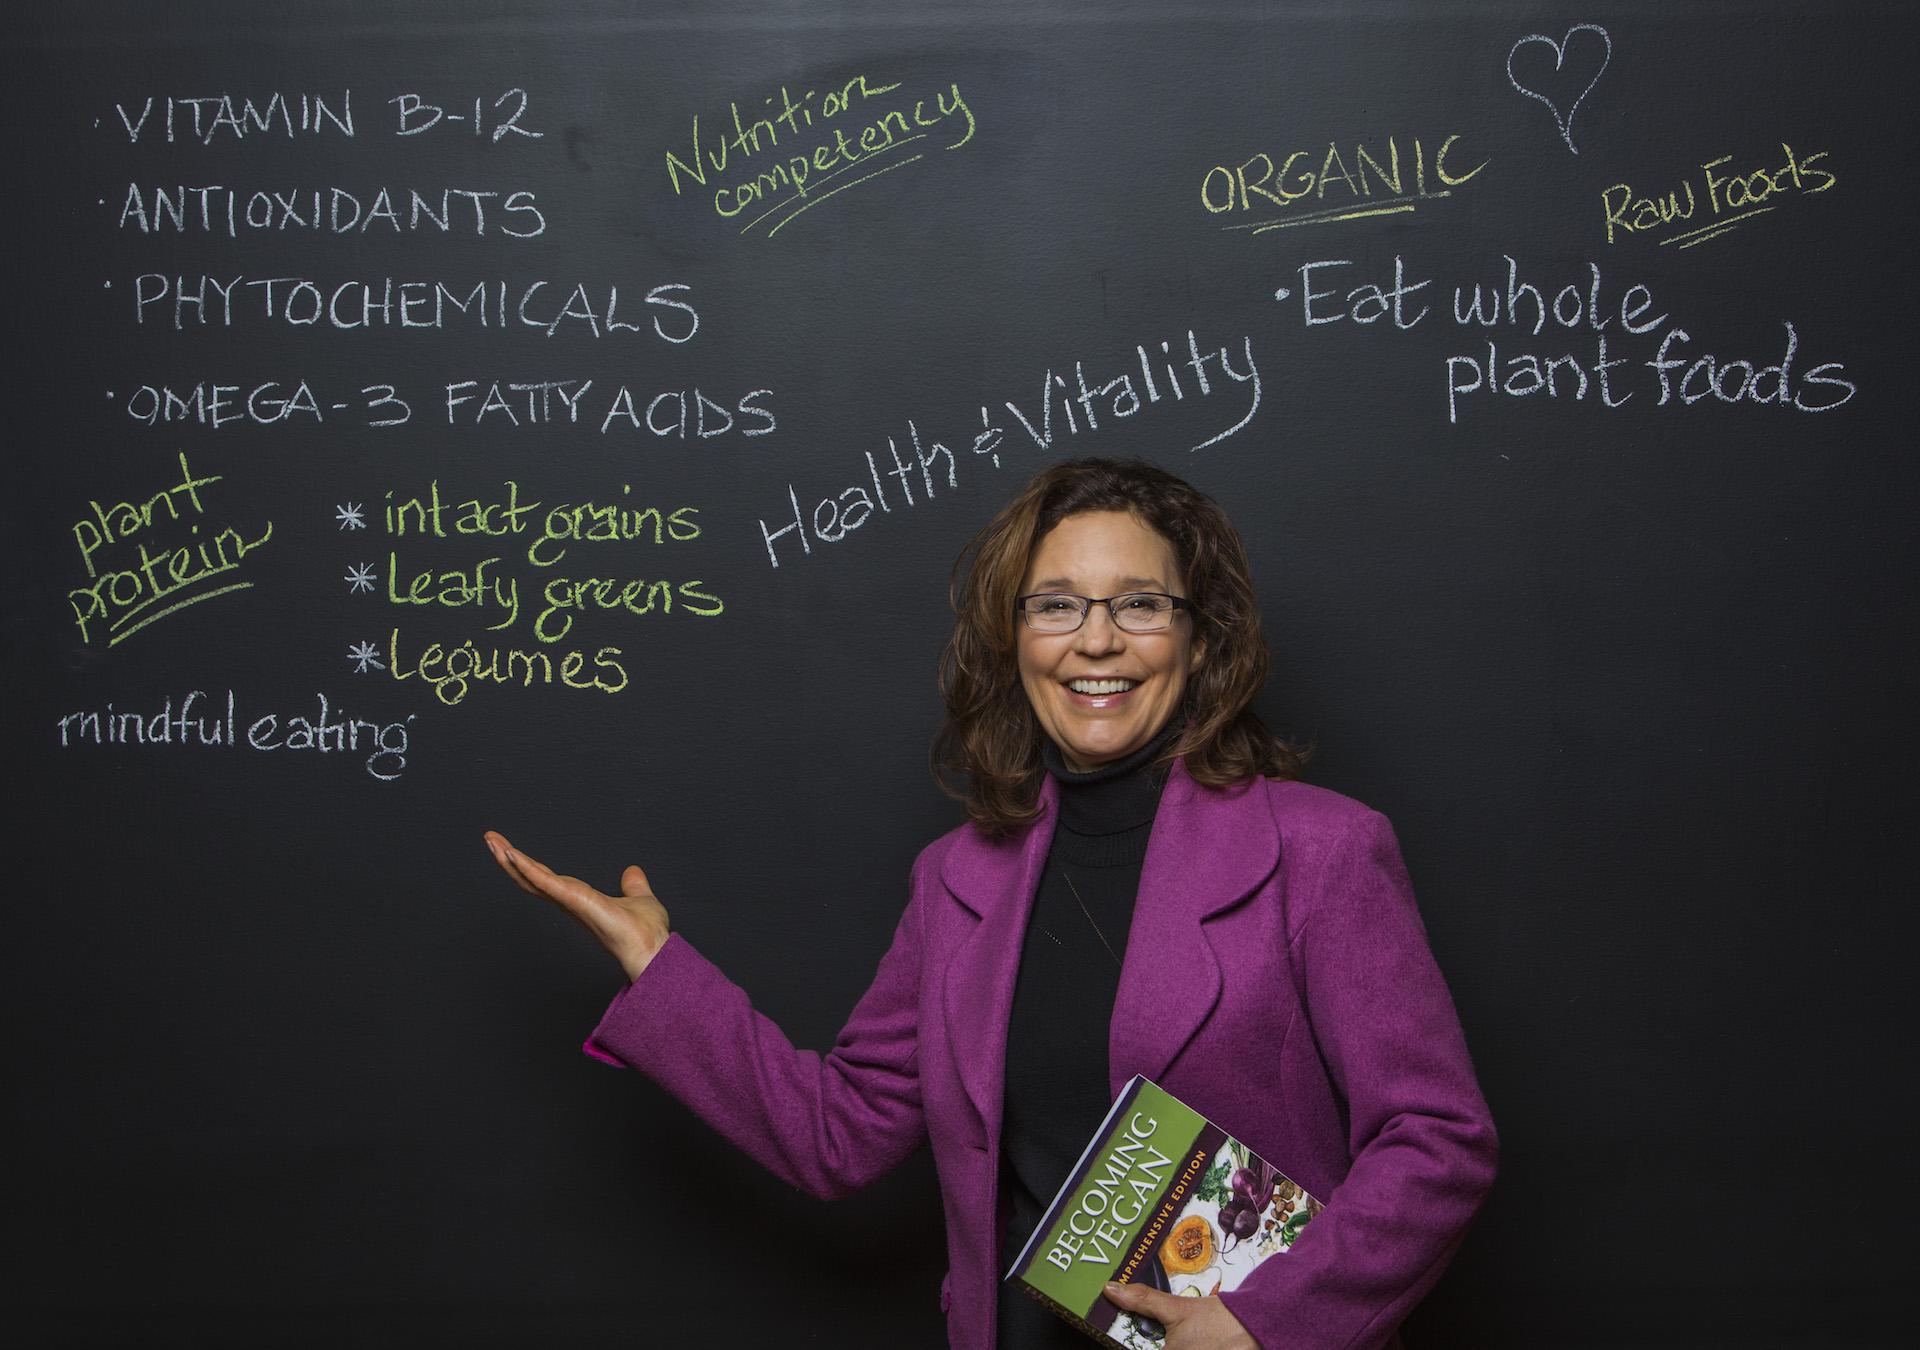 · VITAMIN B-12
· ANTIOXIDANTS
· PHYTOCHEMICALS
· OMEGA-3 FATTY ACIDS
Nutrition
competency
plant
protein
* intact grains
* Leafy greens
* Legumes
mindful eating
Health & Vitality
ORGANIC
Raw Foods
· Eat whole
plant foods
BECOMING
VEGAN
MPREHENSIVE EDITION